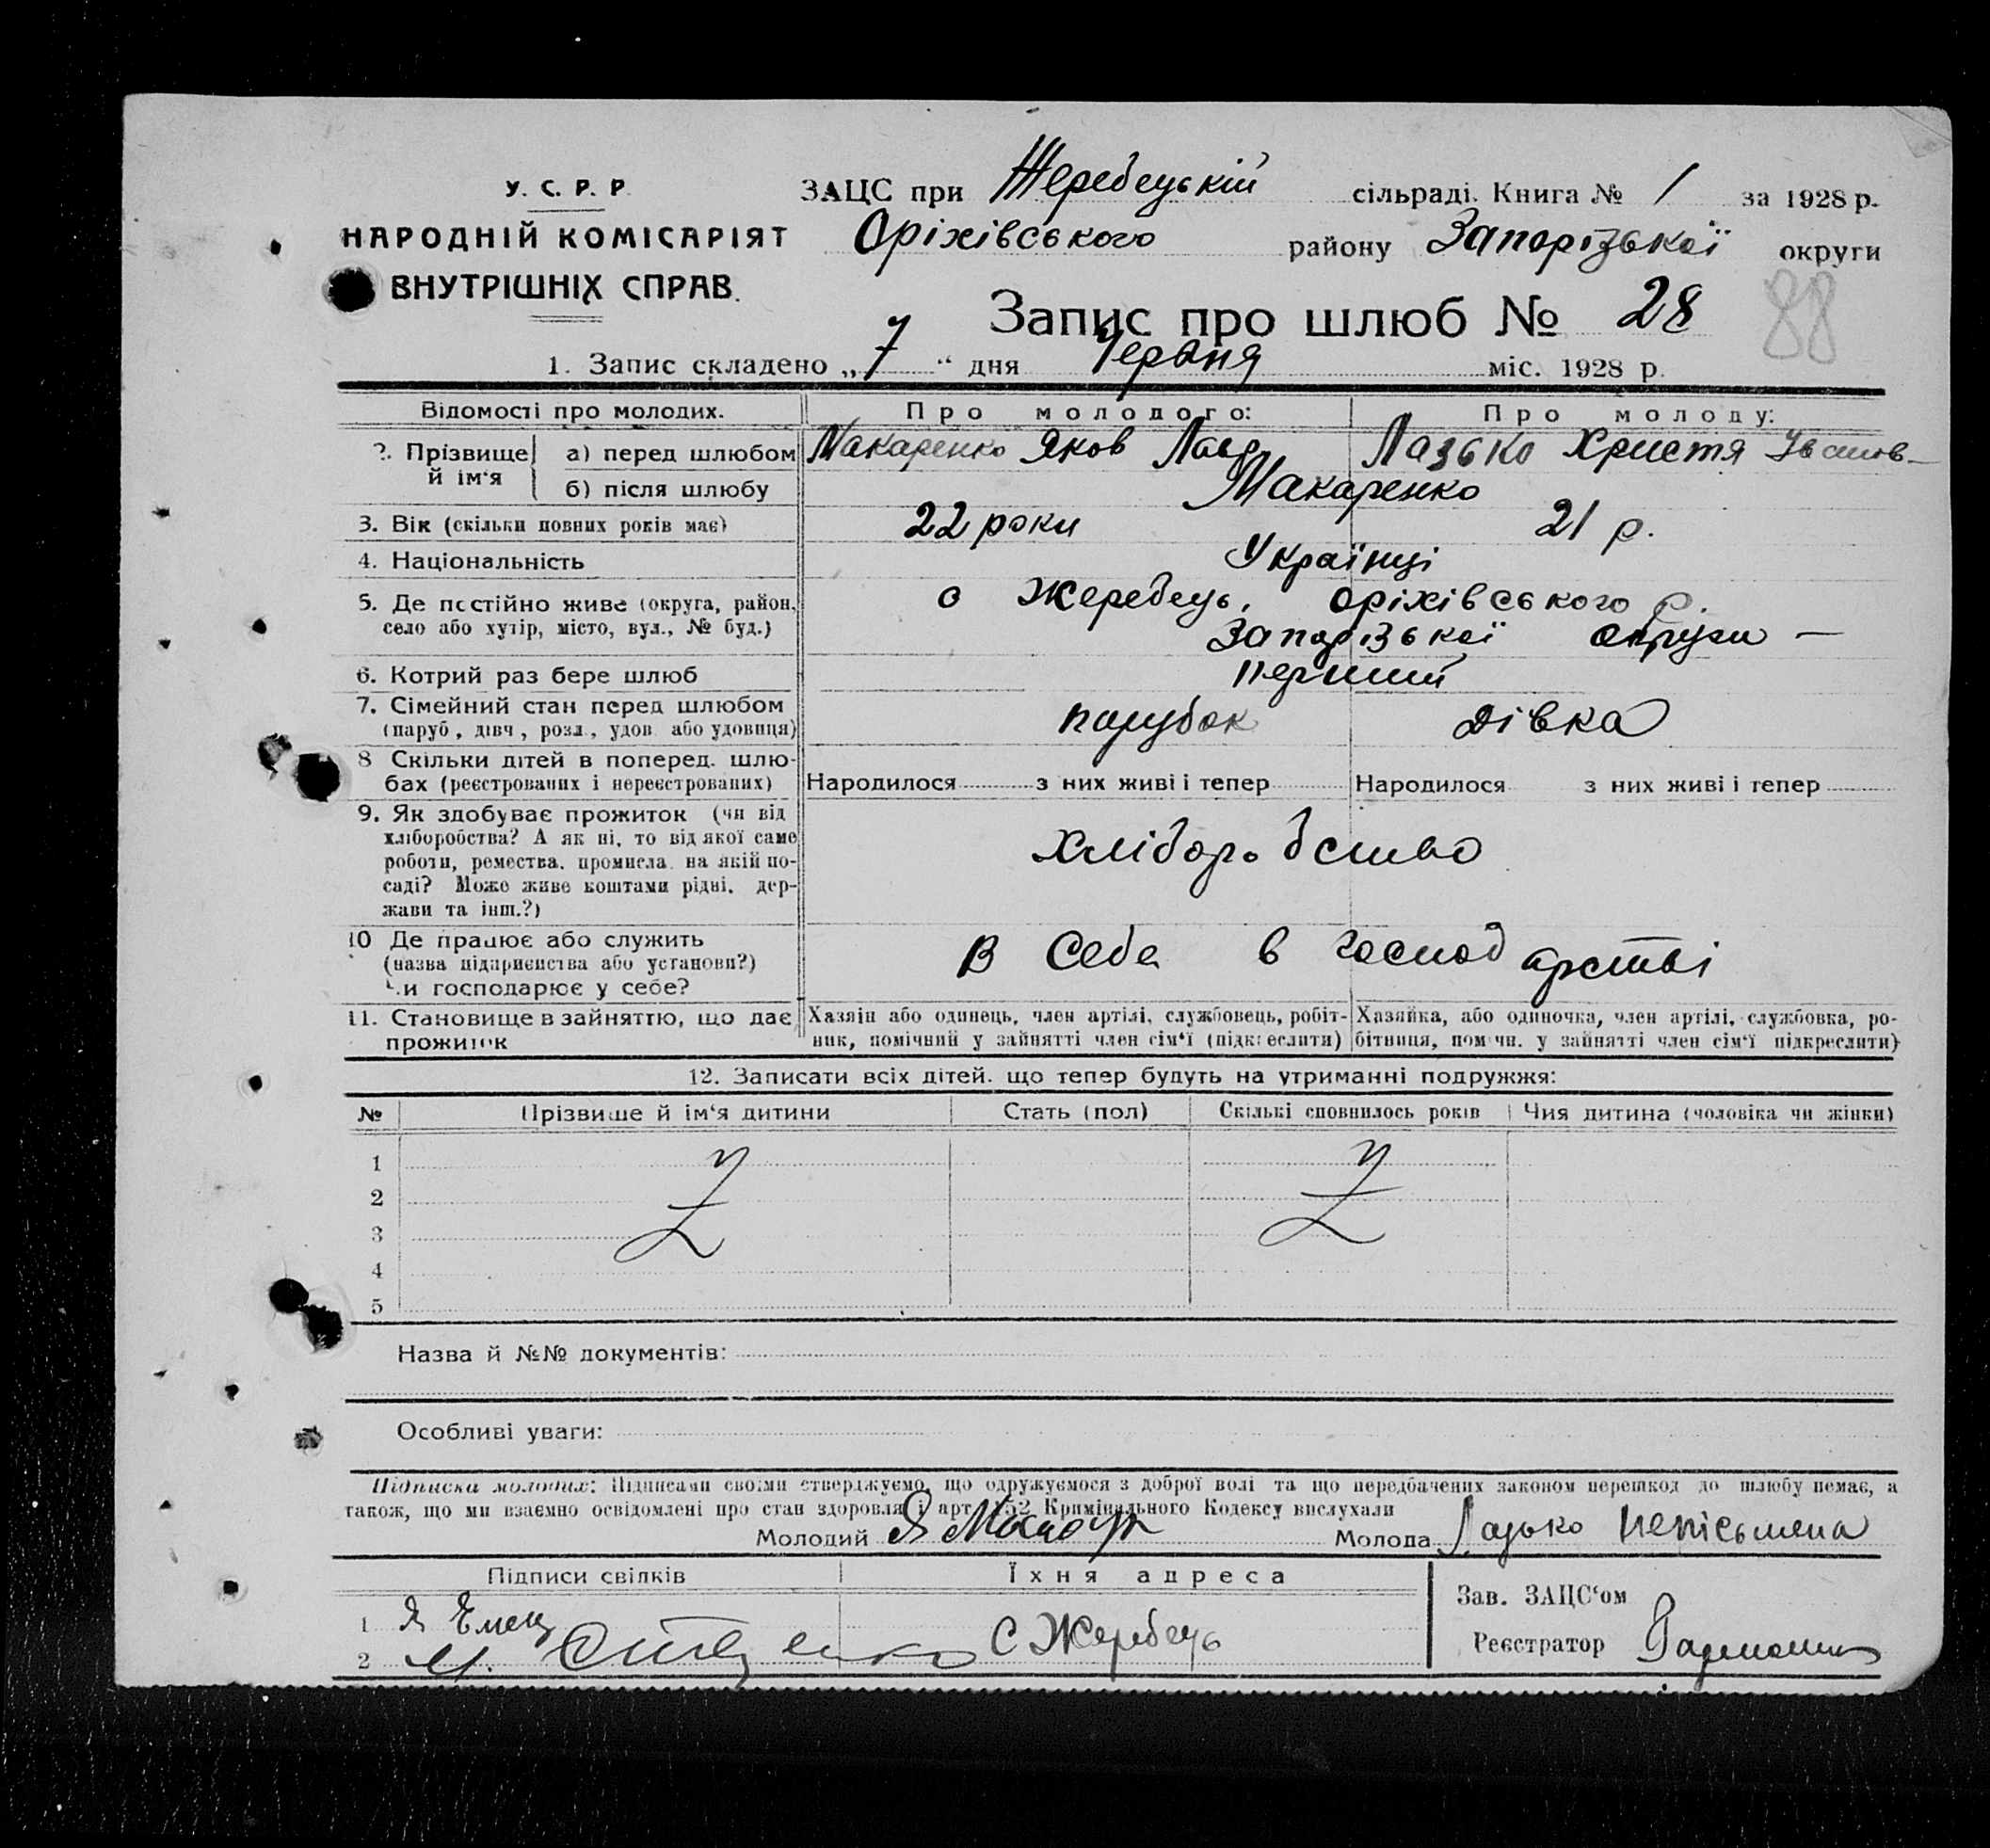 У. С. Р. Р.
НАРОДНІЙ КОМІСАРІЯТ
ВНУТРІШНІХ СПРАВ.
ЗАЦС при Жеребецькій сільраді. Книга № 1 за 1928 р.
Оріхівського району Запорізької округи
Запис про шлюб № 28
88
1. Запис складено „7“ дня Червня міс. 1928 р.
Відомості про молодих. Про молодого: Про молоду:
2. Прізвище й ім‘я
а) перед шлюбом Макаренко Яков Лазько Христя Іванов
б) після шлюбу Макаренко
3. Вік (скільки повних років має) 22 роки 21 р.
4. Національність Українці
5. Де постійно живе (округа, район, село або хутір, місто, вул., № буд.) с Жеребець, Оріхівського р.
Запорізької округи —
6. Котрий раз бере шлюб перший
7. Сімейний стан перед шлюбом (паруб., дівч., розл., удов. або удовиця) парубок дівка
8 Скільки дітей в поперед. шлюбах (реєстрованих і нереєстрованих) Народилося з них живі і тепер Народилося з них живі і тепер
9. Як здобуває прожиток (чи від хліборобства? А як ні, то від якої саме роботи, ремества, промисла, на якій посаді? Може живе коштами рідні, держави та інш.?) хліборобство
10 Де працює або служить (назва підприємства або установи?) Чи господарює у себе? В себе в господарстві
11. Становище в зайняттю, що дає прожиток
Хазяїн або одинець, член артілі, службовець, робітник, помічний у зайнятті член сім‘ї (підкреслити)
Хазяйка, або одиночка, член артілі, службовка, робітниця, помічн. у зайнятті член сім‘ї підкреслити)
12. Записати всіх дітей, що тепер будуть на утриманні подружжя:
№ Прізвище й ім‘я дитини Стать (пол) Скількі сповнилось років Чия дитина (чоловіка чи жінки)
1
2
3
4
5
Назва й №№ документів:
Особливі уваги:
Підписка молодих: Підписами своїми стверджуємо, що одружуємося з доброї волі та що передбачених законом перешкод до шлюбу немає, а
також, що ми взаємно освідомлені про стан здоровля і арт. 152 Кримінального Кодексу вислухали
Молодий Я Молода Лазько неписьмена
Підписи свідків Їхня адреса
1 Я Емец
2 С Жеребець
Зав. ЗАЦС‘ом
Реєстратор